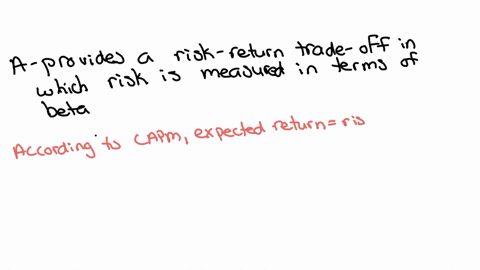 A-provides a risk-return trade-off in
which risk is measured in terms of
beta
According to CAPM, expected return = ris